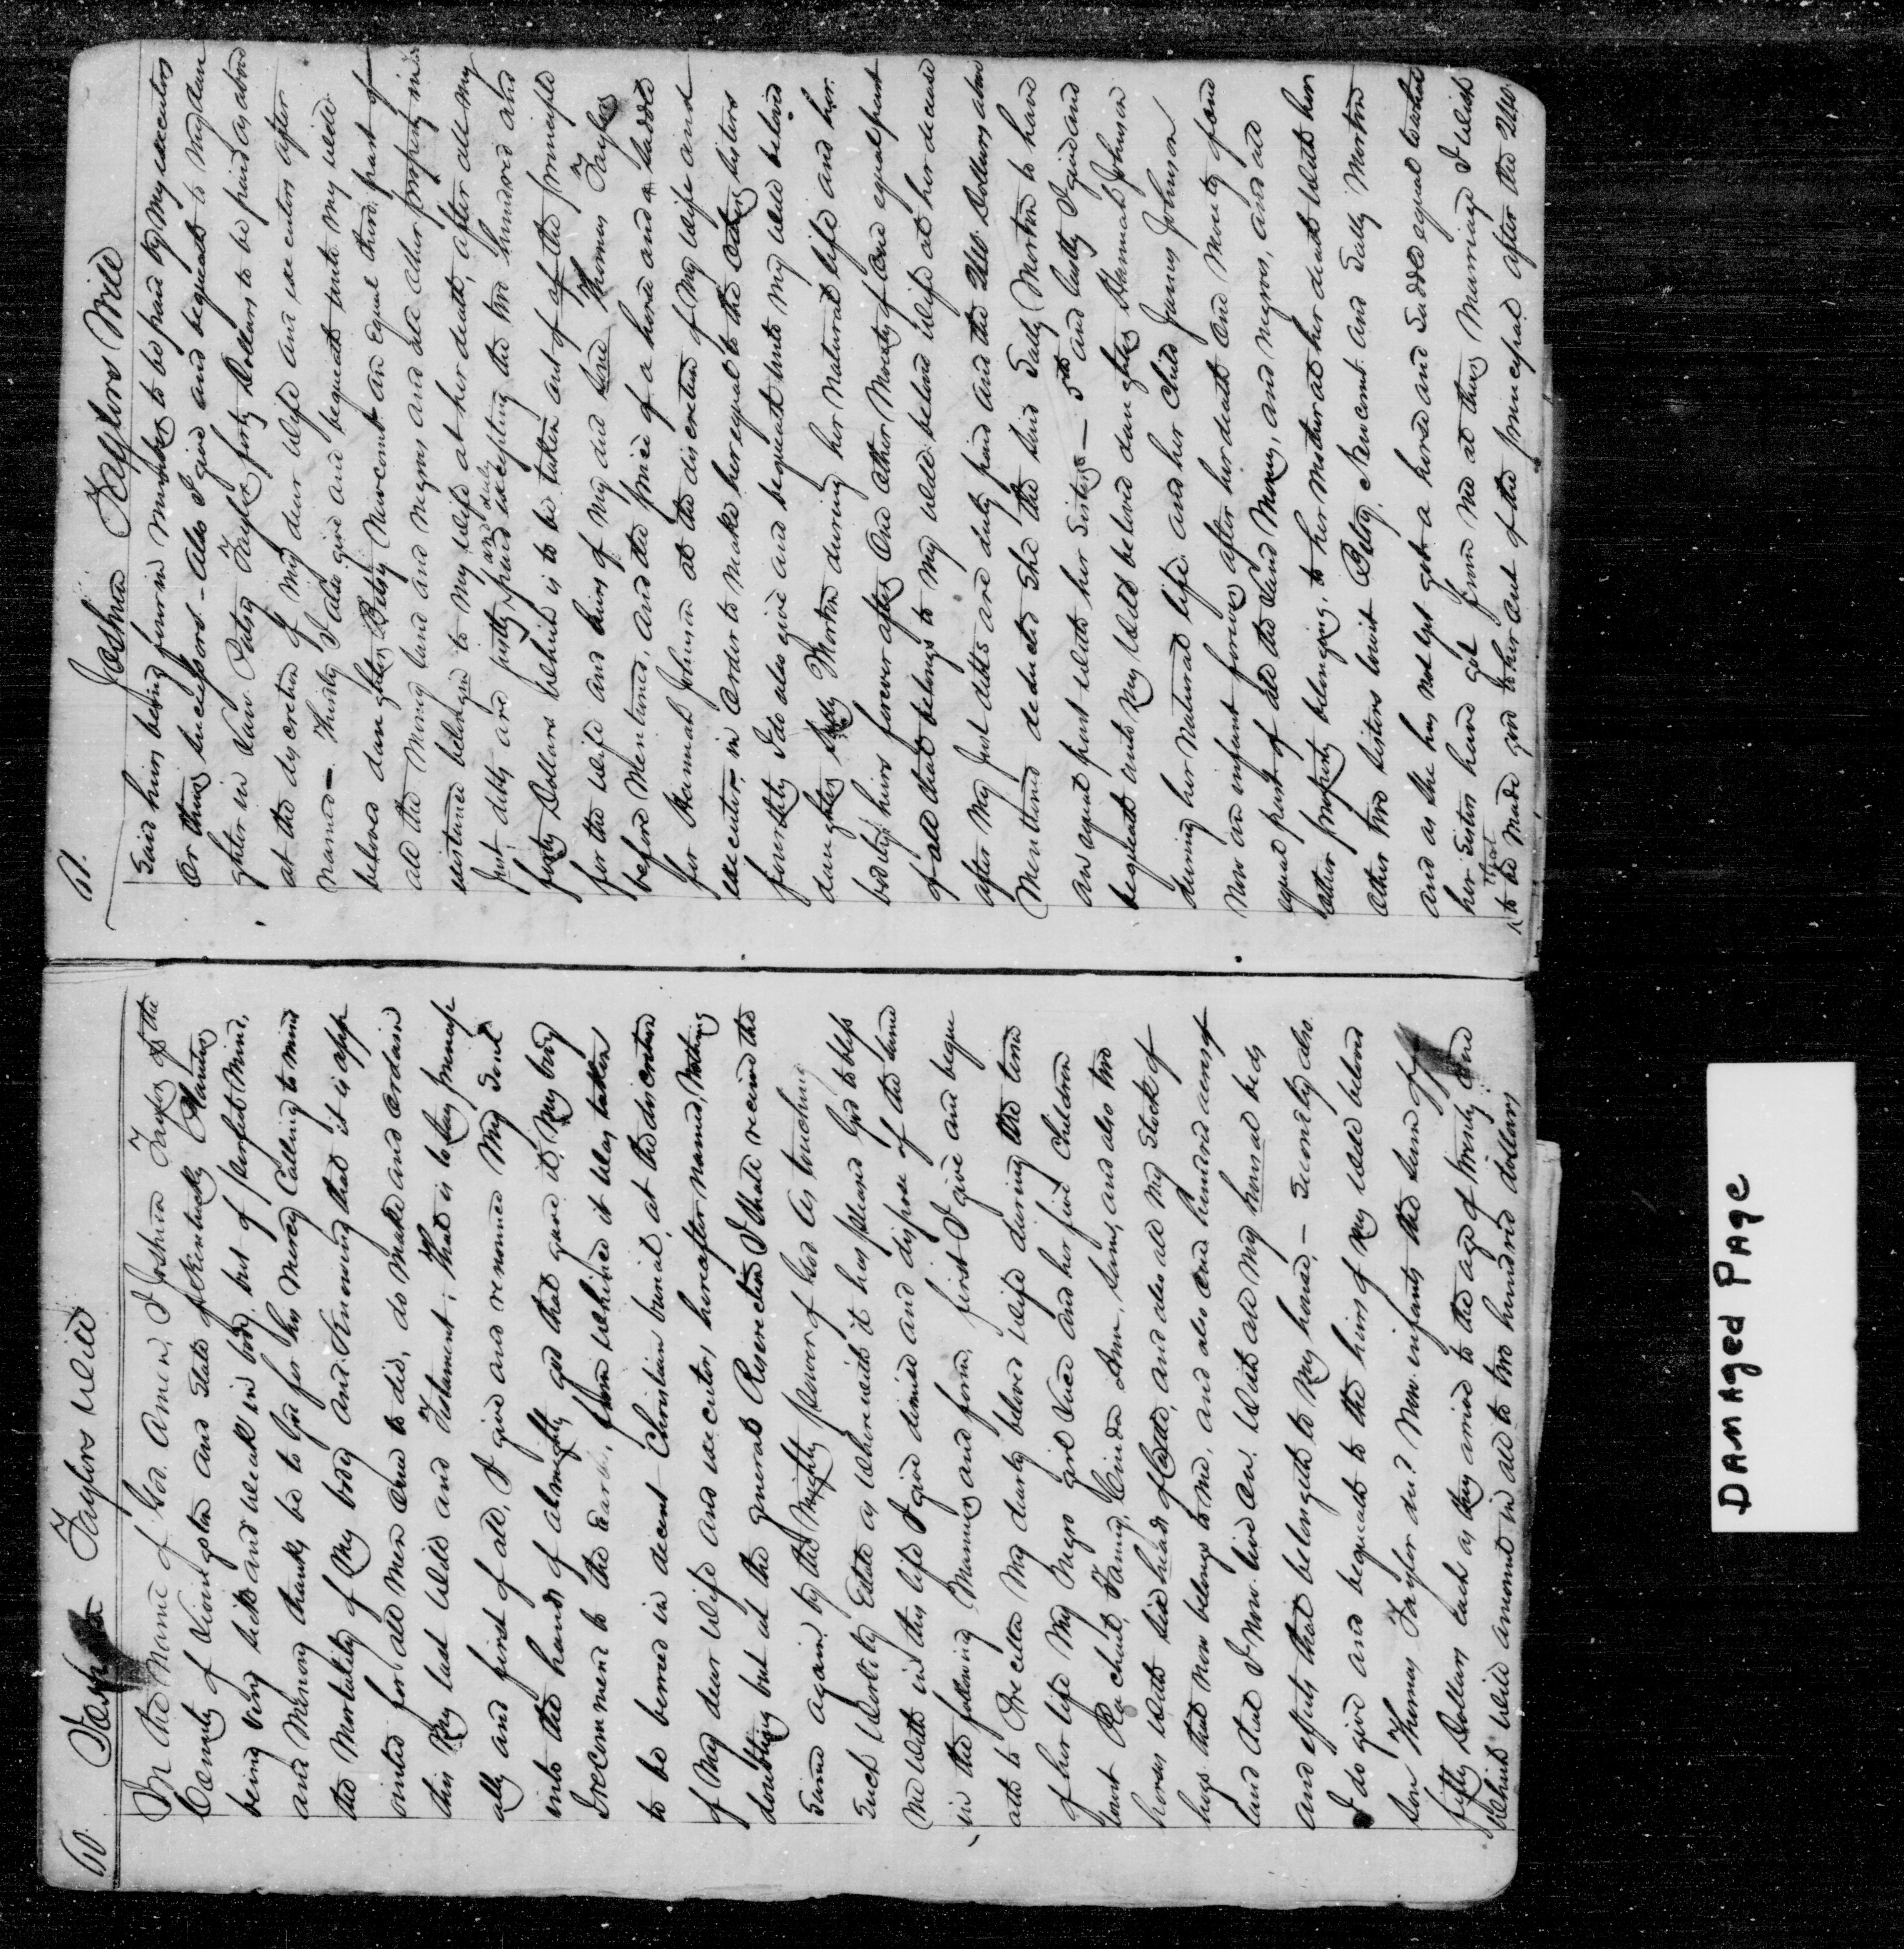 60. Joshua Taylors Will
In the Name of God. Amen, I Joshua Taylor of the
County of Livingston and State of Kentucky Planter
being very sick and weak in body but of perfect Mind,
and Memory thanks be to God for his Mercy Calling to mind
the Mortality of My body and Knowing that it is app
ointed for all men Once to die, do make and Ordain
this My last Will and Testament; That is to say princip
ally and first of all, I give and renounce My Soul
into the hands of almighty god that gave it, My body
I recommend to the Earth, from whence it Was taken
to be berred in decent Christian burial, at the discretion
of My dear Wife and executors hereafter named, Nothing
doubting but at the general Reserection I shall receive the
same again by the Mighty power of God As touching
Such Worldly Estate as Wherewith it has pleased God to bless
Me With in this life I give demise and dispose of the same
in the following Manner and form, first I give and beque
ath to Precilla My dearly beloved Wife during the term
of her life My Negro girl Vice and her five Children
towit Rachael, Fanny, Cinda Ann, Sam, and also two
horses With six heads of Cattle, and also all My Stock of
hogs that now belongs to me, and also One hundred acres of
land that I Now live On. With all My housal beds
and effects that belongeth to My house, - Secondly also.
I do give and bequeath to the heirs of My Well beloved
Son Thomas Taylor decd. Now infants the Sum of
fifty Dollars each as they arrive to the age of twenty One
Which Will amount in all to two hundred dollars
61. Joshua Taylors Will
Said heirs being four in Number to be paid by My executors
Or their Successors - Also I give and bequeath to My daw
ghter in Law Patsy Taylor forty Dollars to be paid as above
at the discretion of My dear Wife and executors after
Named - Thirdly I also give and bequeath unto my well
beloved daughter Betsy Newcomt an Equal third part of
all the Money land and negros and all other property in
existance belonged to My Wife at her death, after all My
Just debts are justly and duly paid excepting the two hundred and
forty Dollars Which is to be taken out of of the principle
for the Wife and heirs of My decd Son Thomas Taylor
before Mentioned, and the price of a horse and a Saddle
for Hannah Johnson at the discretion of My Wife and
executors, in Order to make her equal to the Other Sisters
fourthly I do also give and bequeath unto my Well beloved
daughter Sally Morton during her Natural life and her
bodily heirs forever after One other Moety of One equal part
of all that belongs to my Well beloved Wife at her decease
after My Just debts are duly paid and the 240 Dollars above
Mentioned deducted She the said Sally Morton to have
an equal part With her Sisters - 5th and lastly I give and
bequeath unto My Well beloved daughter Hannah Johnson
during her Natural life and her Child James Johnson
Now an infant forever after her death One Moety of and
equal part of all the Land Money, and Negros, and all
other property belonging, to her Mother at her death With her
Other two Sisters towit Betsy Newcomt and Sally Morton
and as She has Not yet got a horse and Saddle equal to what
her Sisters have got from Me at their Marriage I Wish
that to be Made good to her out of the principal after the 240.
DAMAGED PAGE